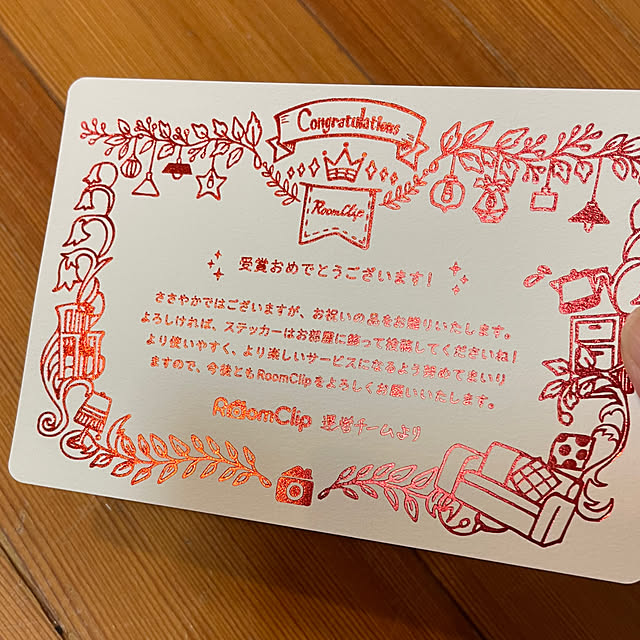 Congratulations
RoomClip
受賞おめでとうございます!
ささやかではございますが、お祝いの品をお贈りいたします。
よろしければ、ステッカーはお部屋に飾って投稿してくださいね!
より使いやすく、より楽しいサービスになるよう努めてまいり
ますので、今後ともRoomClipをよろしくお願いいたします。
RoomClip 運営チームより